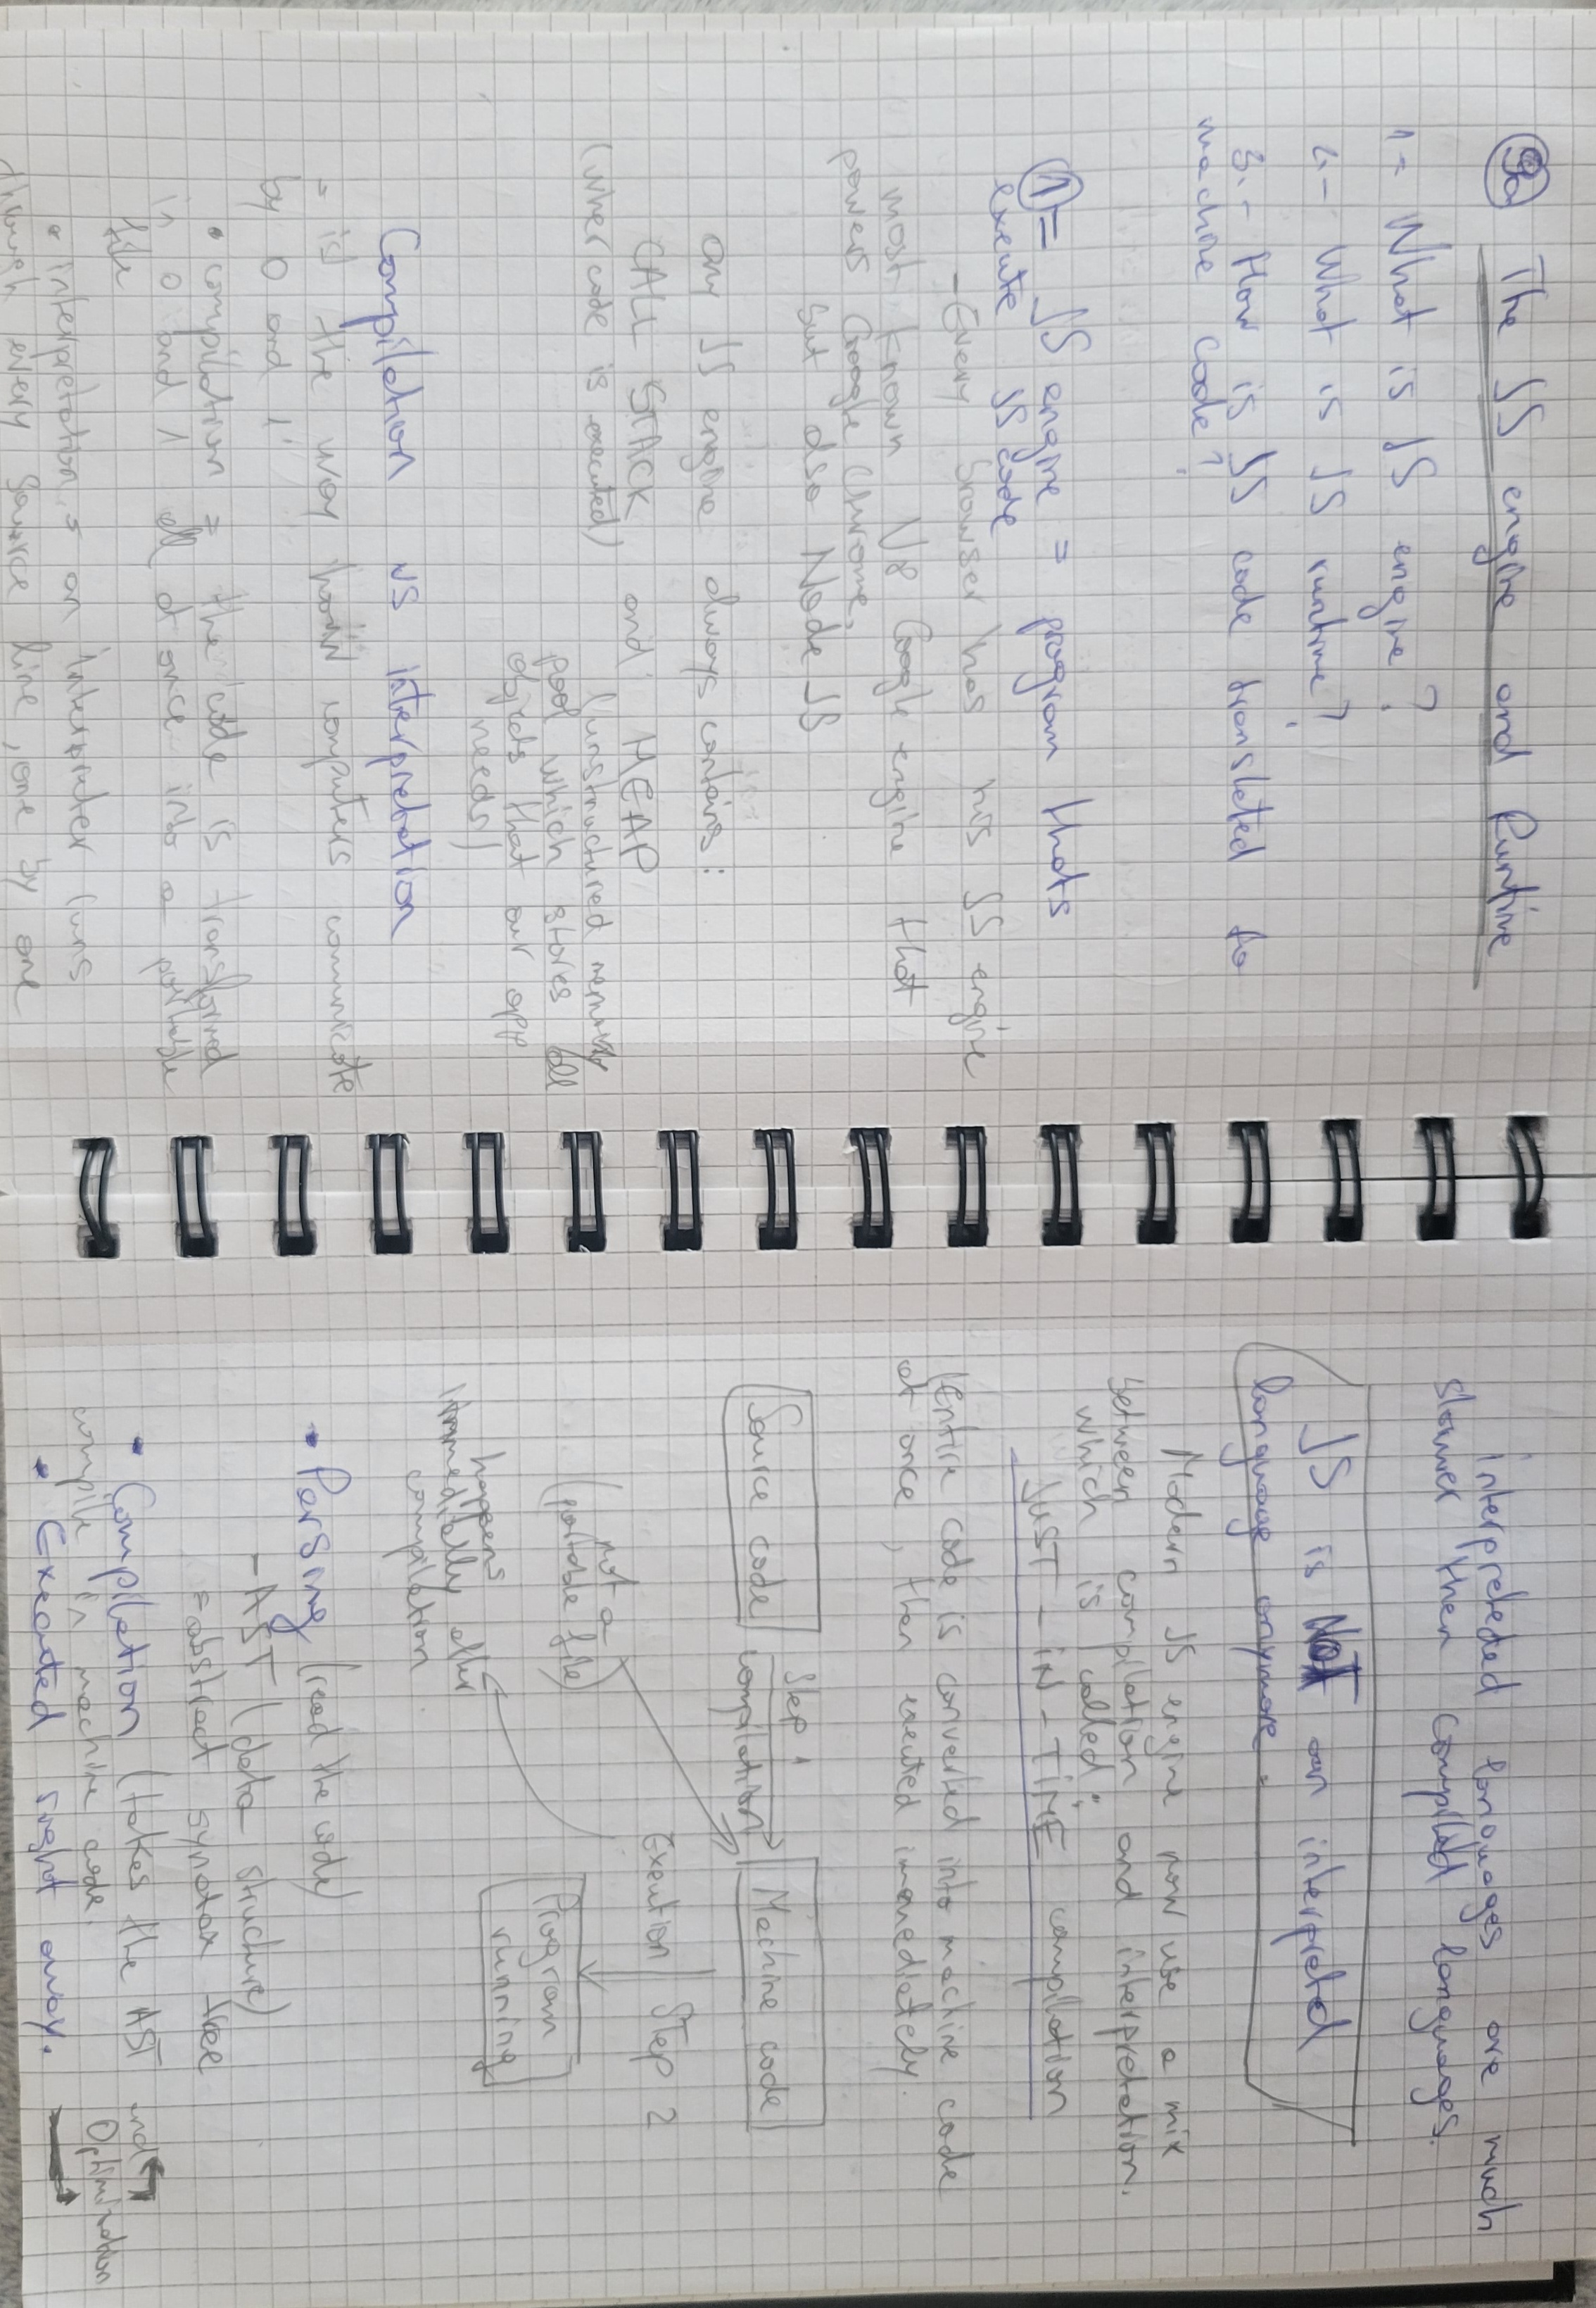 90 The JS engine and Runtime
1= What is JS engine?
2.- What is JS runtime?
3.- How is JS code translated to
machine code?
1= JS engine = program thats
execute JS code
- Every browser has his JS engine
most known V8 Google engine that
powers Google Chrome,
but also Node JS
any JS engine always contains:
CALL STACK and HEAP
(wher code is executed)
(unstructured memory
pool which stores all
objects that our app
needs)
Compilation vs Interpretation
= is the way computers communicate
by 0 and 1
• compilation = the code is transformed
in 0 and 1 all at once into a portable
file
• interpretation = an interpreter runs
through every source line, one by one
interpreteded languages are much
slower then compiled languages.
JS is NOT an interpreted
language anymore.
Modern JS engine now use a mix
between compilation and interpretation.
which is called:
JUST-IN-TIME compilation
(Entire code is converted into machine code
at once, then executed immediately.
Source code
Step 1
compilation
Machine code
(not a
portable file)
Execution Step 2
happens
immediatelly after
compilation
Program
running
• Parsing (read the code)
- AST (data structure)
= abstract syntax tree
• Compilation (takes the AST and
compile in machine code.
• Executed right away.
Optimization